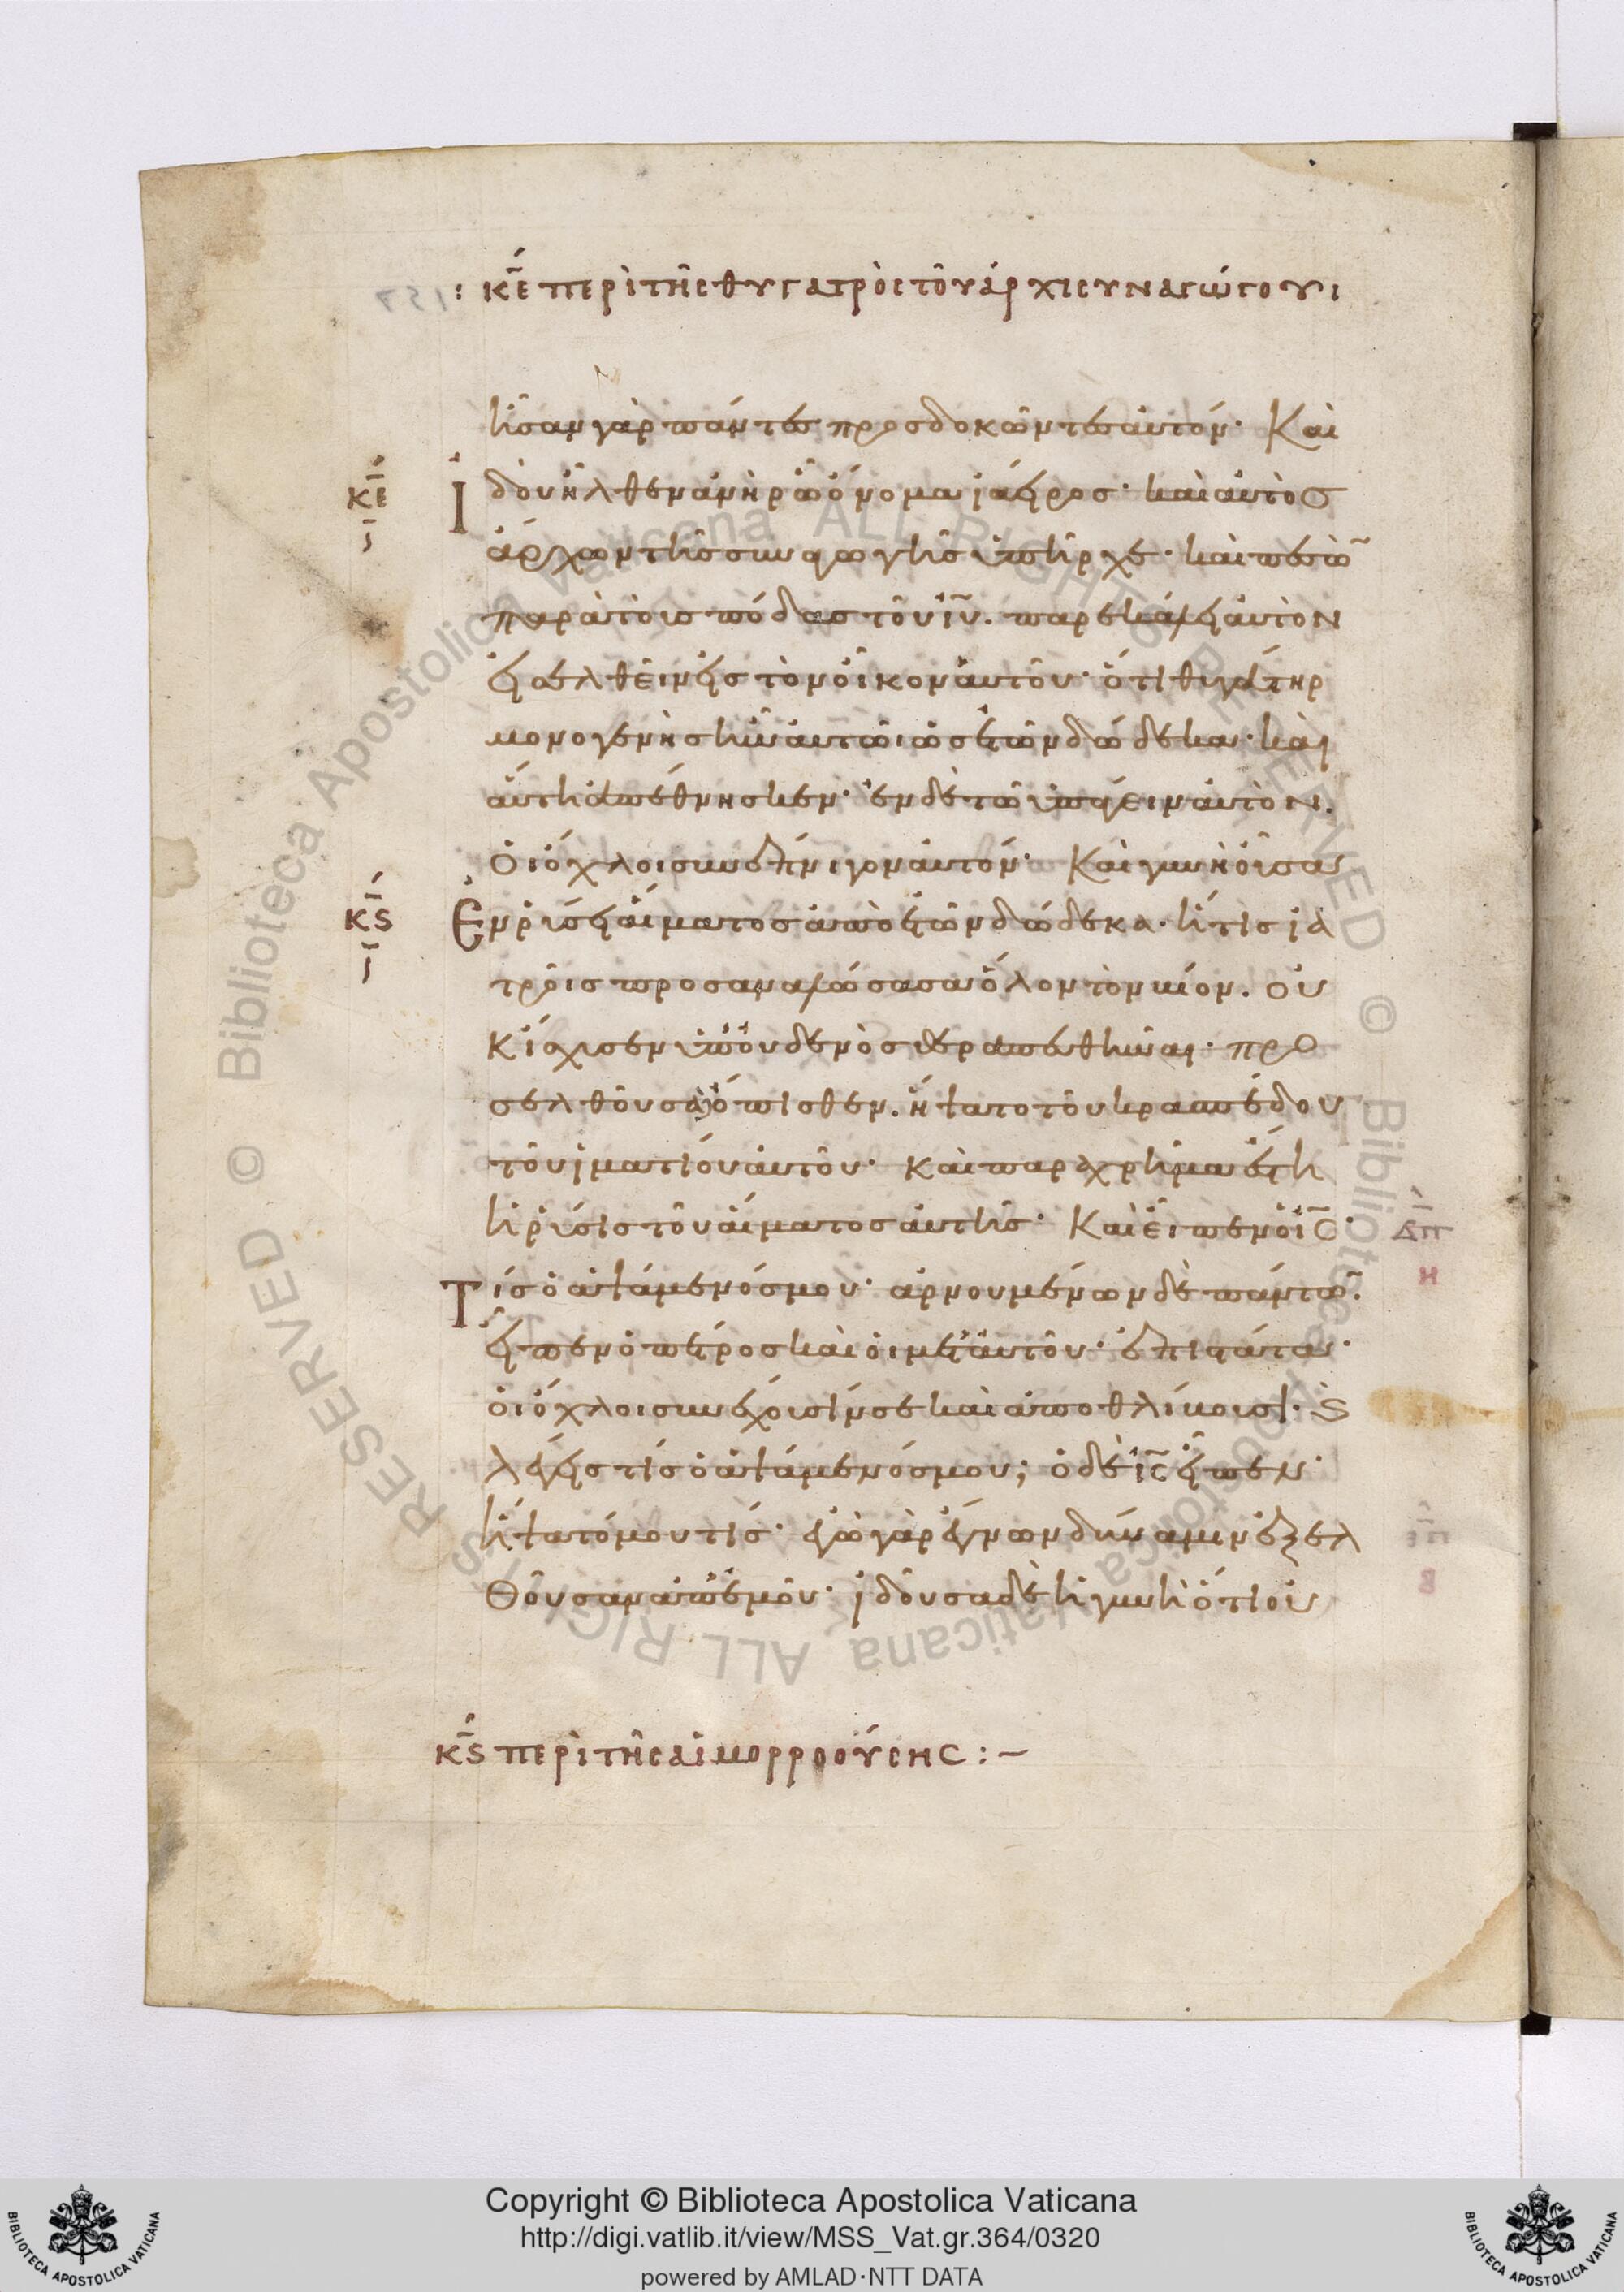 : κε περὶ τῆς θυγατρὸς τοῦ ἀρχισυναγώγου :
ἦσαν γὰρ πάντες προσδοκῶντες αὐτόν· Καὶ
κε ἰδοὺ ἦλθεν ἀνὴρ ᾧ ὄνομα ἰάειρος· καὶ αὐτὸς
ἄρχων τῆς συναγωγῆς ὑπῆρχε· καὶ πεσὼ
παρὰ τοὺς πόδας τοῦ ιυ. παρεκάλει αὐτὸν
εἰσελθεῖν εἰς τὸν οἶκον αὐτοῦ· ὅτι θυγάτηρ
μονογενὴς ἦν αὐτῶ ὡς ἐτῶν δώδεκα· καὶ
αὕτη ἀπέθνησκεν· ἐν δὲ τῶ ὑπάγειν αὐτὸν.
οἱ ὄχλοι συνέπνιγον αὐτόν· Καὶ γυνὴ οὖσα
κς Ἐν ῥύσει αἵματος ἀπὸ ἐτῶν δώδεκα· ἥτις ἰα
τροῖς προσαναλώσασα ὅλον τὸν βίον. οὐ
κ ἴσχυσεν ὑπ' οὐδενὸς θεραπευθῆναι· προ
σελθοῦσα ὄπισθεν. ἥψατο τοῦ κρασπέδου
τοῦ ἱματίου αὐτοῦ· καὶ παραχρῆμα ἔστη
ἡ ῥύσις τοῦ αἵματος αὐτῆς· Καὶ εἶπεν ὁ ις·
Τίς ὁ ἁψάμενός μου· ἀρνουμένων δὲ πάντω.
εἶπεν ὁ πέτρος καὶ οἱ μετ' αὐτοῦ· ἐπιστάτα·
οἱ ὄχλοι συνέχουσίν σε καὶ ἀποθλίβουσι· ϗ
λέγεις τίς ὁ ἁψάμενός μου; ὁ δὲ ις εἶπεν·
ἥψατό μου τίς· ἐγὼ γὰρ ἔγνων δύναμιν ἐξελ
θοῦσαν ἀπ' ἐμοῦ· ἰδοῦσα δὲ ἡ γυνὴ ὅτι οὐ
κς περὶ τῆς αἱμορροούσης :~
Copyright © Biblioteca Apostolica Vaticana
http://digi.vatlib.it/view/MSS_Vat.gr.364/0320
powered by AMLAD·NTT DATA